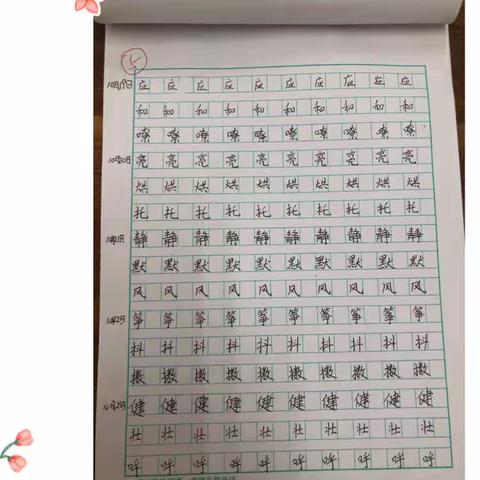 5
10月19日 应 应 应 应 应 应 应 应 应 应
和 和 和 和 和 和 和 和 和 和
嘹 嘹 嘹 嘹 嘹 嘹 嘹 嘹 嘹 嘹
10月20日 亮 亮 亮 亮 亮 亮 亮 亮 亮 亮
烘 烘 烘 烘 烘 烘 烘 烘 烘 烘
托 托 托 托 托 托 托 托 托 托
静 静 静 静 静 静 静 静 静 静
默 默 默 默 默 默 默 默 默 默
风 风 风 风 风 风 风 风 风 风
筝 筝 筝 筝 筝 筝 筝 筝 筝 筝
抖 抖 抖 抖 抖 抖 抖 抖 抖 抖
撒 撒 撒 撒 撒 撒 撒 撒 撒 撒
健 健 健 健 健 健 健 健 健 健
壮 壮 壮 壮 壮 壮 壮 壮 壮 壮
呼 呼 呼 呼 呼 呼 呼 呼 呼 呼